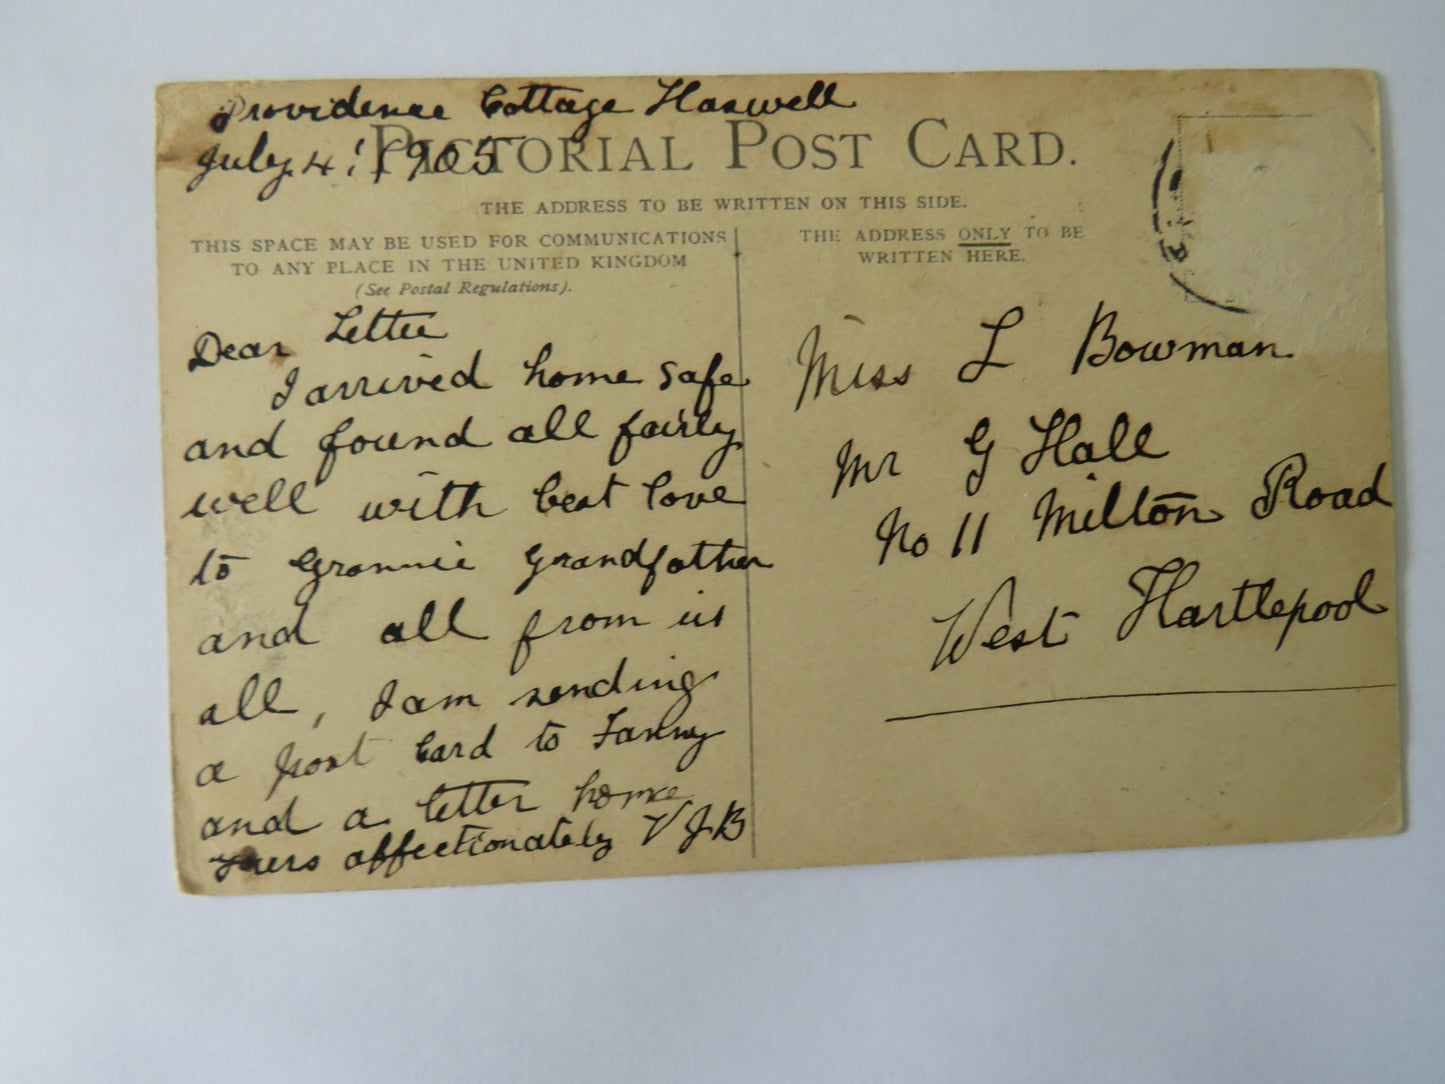 Providence Cottage Haswell
July 4' 1905
PICTORIAL POST CARD.
THE ADDRESS TO BE WRITTEN ON THIS SIDE.
THIS SPACE MAY BE USED FOR COMMUNICATIONS
TO ANY PLACE IN THE UNITED KINGDOM
(See Postal Regulations).
Dear Lettie
I arrived home safe
and found all fairly
well with best love
to Grannie Grandfather
and all from us
all, I am sending
a post Card to Fanny
and a letter home
yours affectionately V J B
THE ADDRESS ONLY TO BE
WRITTEN HERE.
Miss L Bowman
Mr G Hall
No 11 Milton Road
West Hartlepool